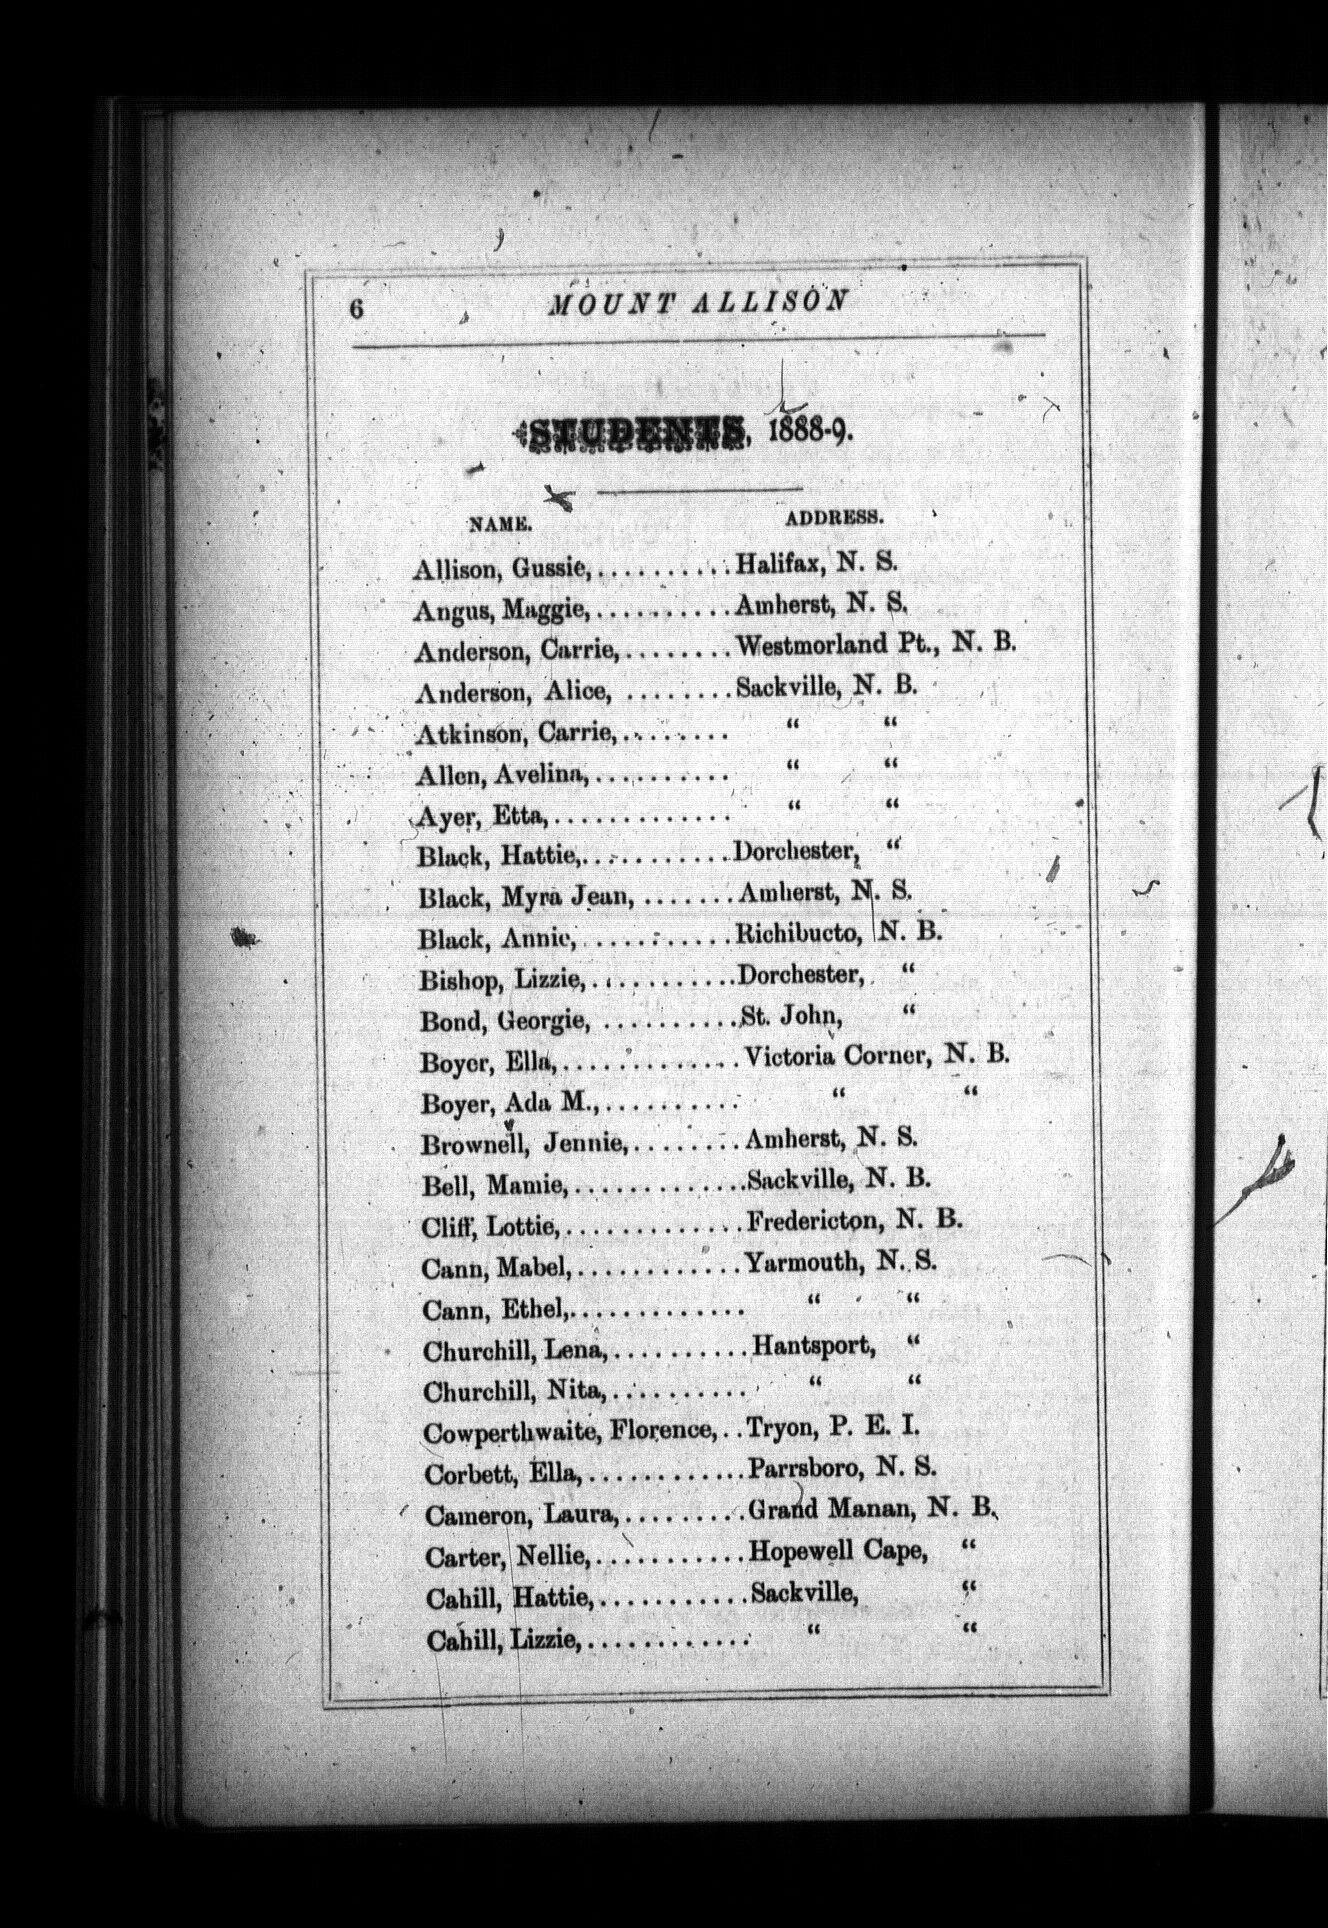 6 MOUNT ALLISON
STUDENTS, 1888-9.
NAME. ADDRESS.
Allison, Gussie,..........Halifax, N. S.
Angus, Maggie,..........Amherst, N. S.
Anderson, Carrie,........Westmorland Pt., N. B.
Anderson, Alice, ........Sackville, N. B.
Atkinson, Carrie,........ “ “
Allen, Avelina,.......... “ “
Ayer, Etta,............. “ “
Black, Hattie,...........Dorchester, “
Black, Myra Jean, .......Amherst, N. S.
Black, Annie,...........Richibucto, N. B.
Bishop, Lizzie,...........Dorchester, “
Bond, Georgie, ..........St. John, “
Boyer, Ella,.............Victoria Corner, N. B.
Boyer, Ada M.,.......... “ “
Brownell, Jennie,........Amherst, N. S.
Bell, Mamie,.............Sackville, N. B.
Cliff, Lottie,.............Fredericton, N. B.
Cann, Mabel,............Yarmouth, N. S.
Cann, Ethel,............. “ “
Churchill, Lena,..........Hantsport, “
Churchill, Nita,.......... “ “
Cowperthwaite, Florence,..Tryon, P. E. I.
Corbett, Ella,............Parrsboro, N. S.
Cameron, Laura,.........Grand Manan, N. B.
Carter, Nellie,...........Hopewell Cape, “
Cahill, Hattie,...........Sackville, “
Cahill, Lizzie,............ “ “